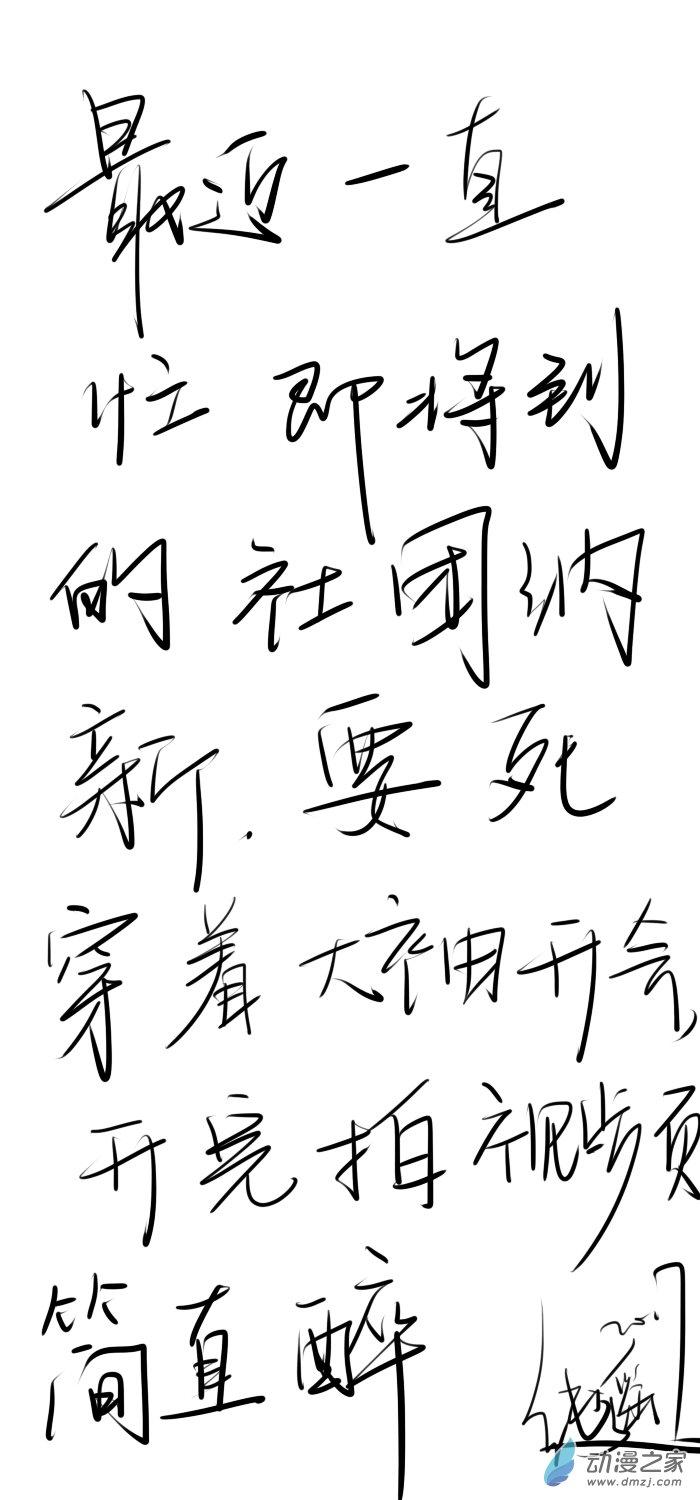 最近一直
忙即将到
的社团纳
新.要死
穿着大袖开会,
开完拍视频
简直醉
动漫之家
www.dmzj.com